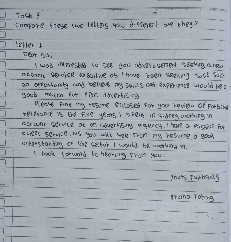 Task 2
Compare these two letters. How different are they?
Letter 1
Dear Sir,
I was interested to see you advertisement seeking a new
account service executive as I have been seeking just such
an opportunity and believe my skills and experience would be a
good match for FBA advertising
Please find my resume enclosed for your review of particular
relevance is the five years I spent in working in
account service at an advertising agency. I have a passion for
client service, as you will see from my resume a good
understanding of the sector I would be working in.
I look forward to hearing from you.
Yours faithfully